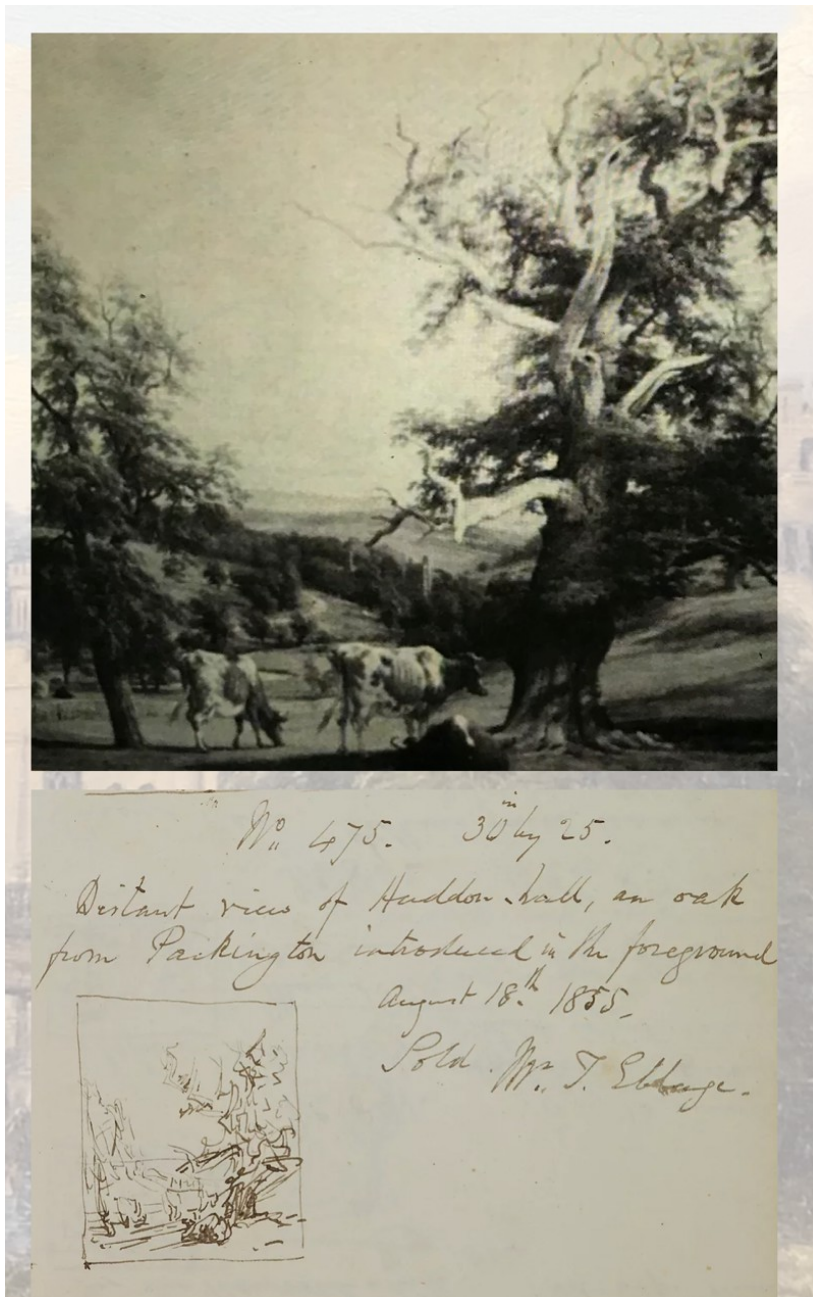 No. 475. 30 in by 25.
Distant view of Haddon-hall, an oak
from Packington introduced in the foreground
August 18th 1855.
Sold. Mr. T.